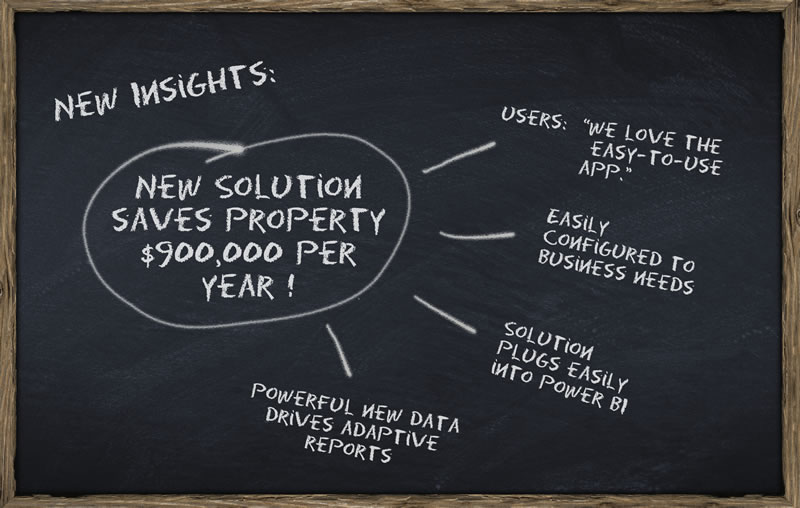 NEW INSIGHTS:
NEW SOLUTION
SAVES PROPERTY
$900,000 PER
YEAR !
USERS: "WE LOVE THE
EASY-TO-USE
APP."
EASILY
CONFIGURED TO
BUSINESS NEEDS
SOLUTION
PLUGS EASILY
INTO POWER BI
POWERFUL NEW DATA
DRIVES ADAPTIVE
REPORTS